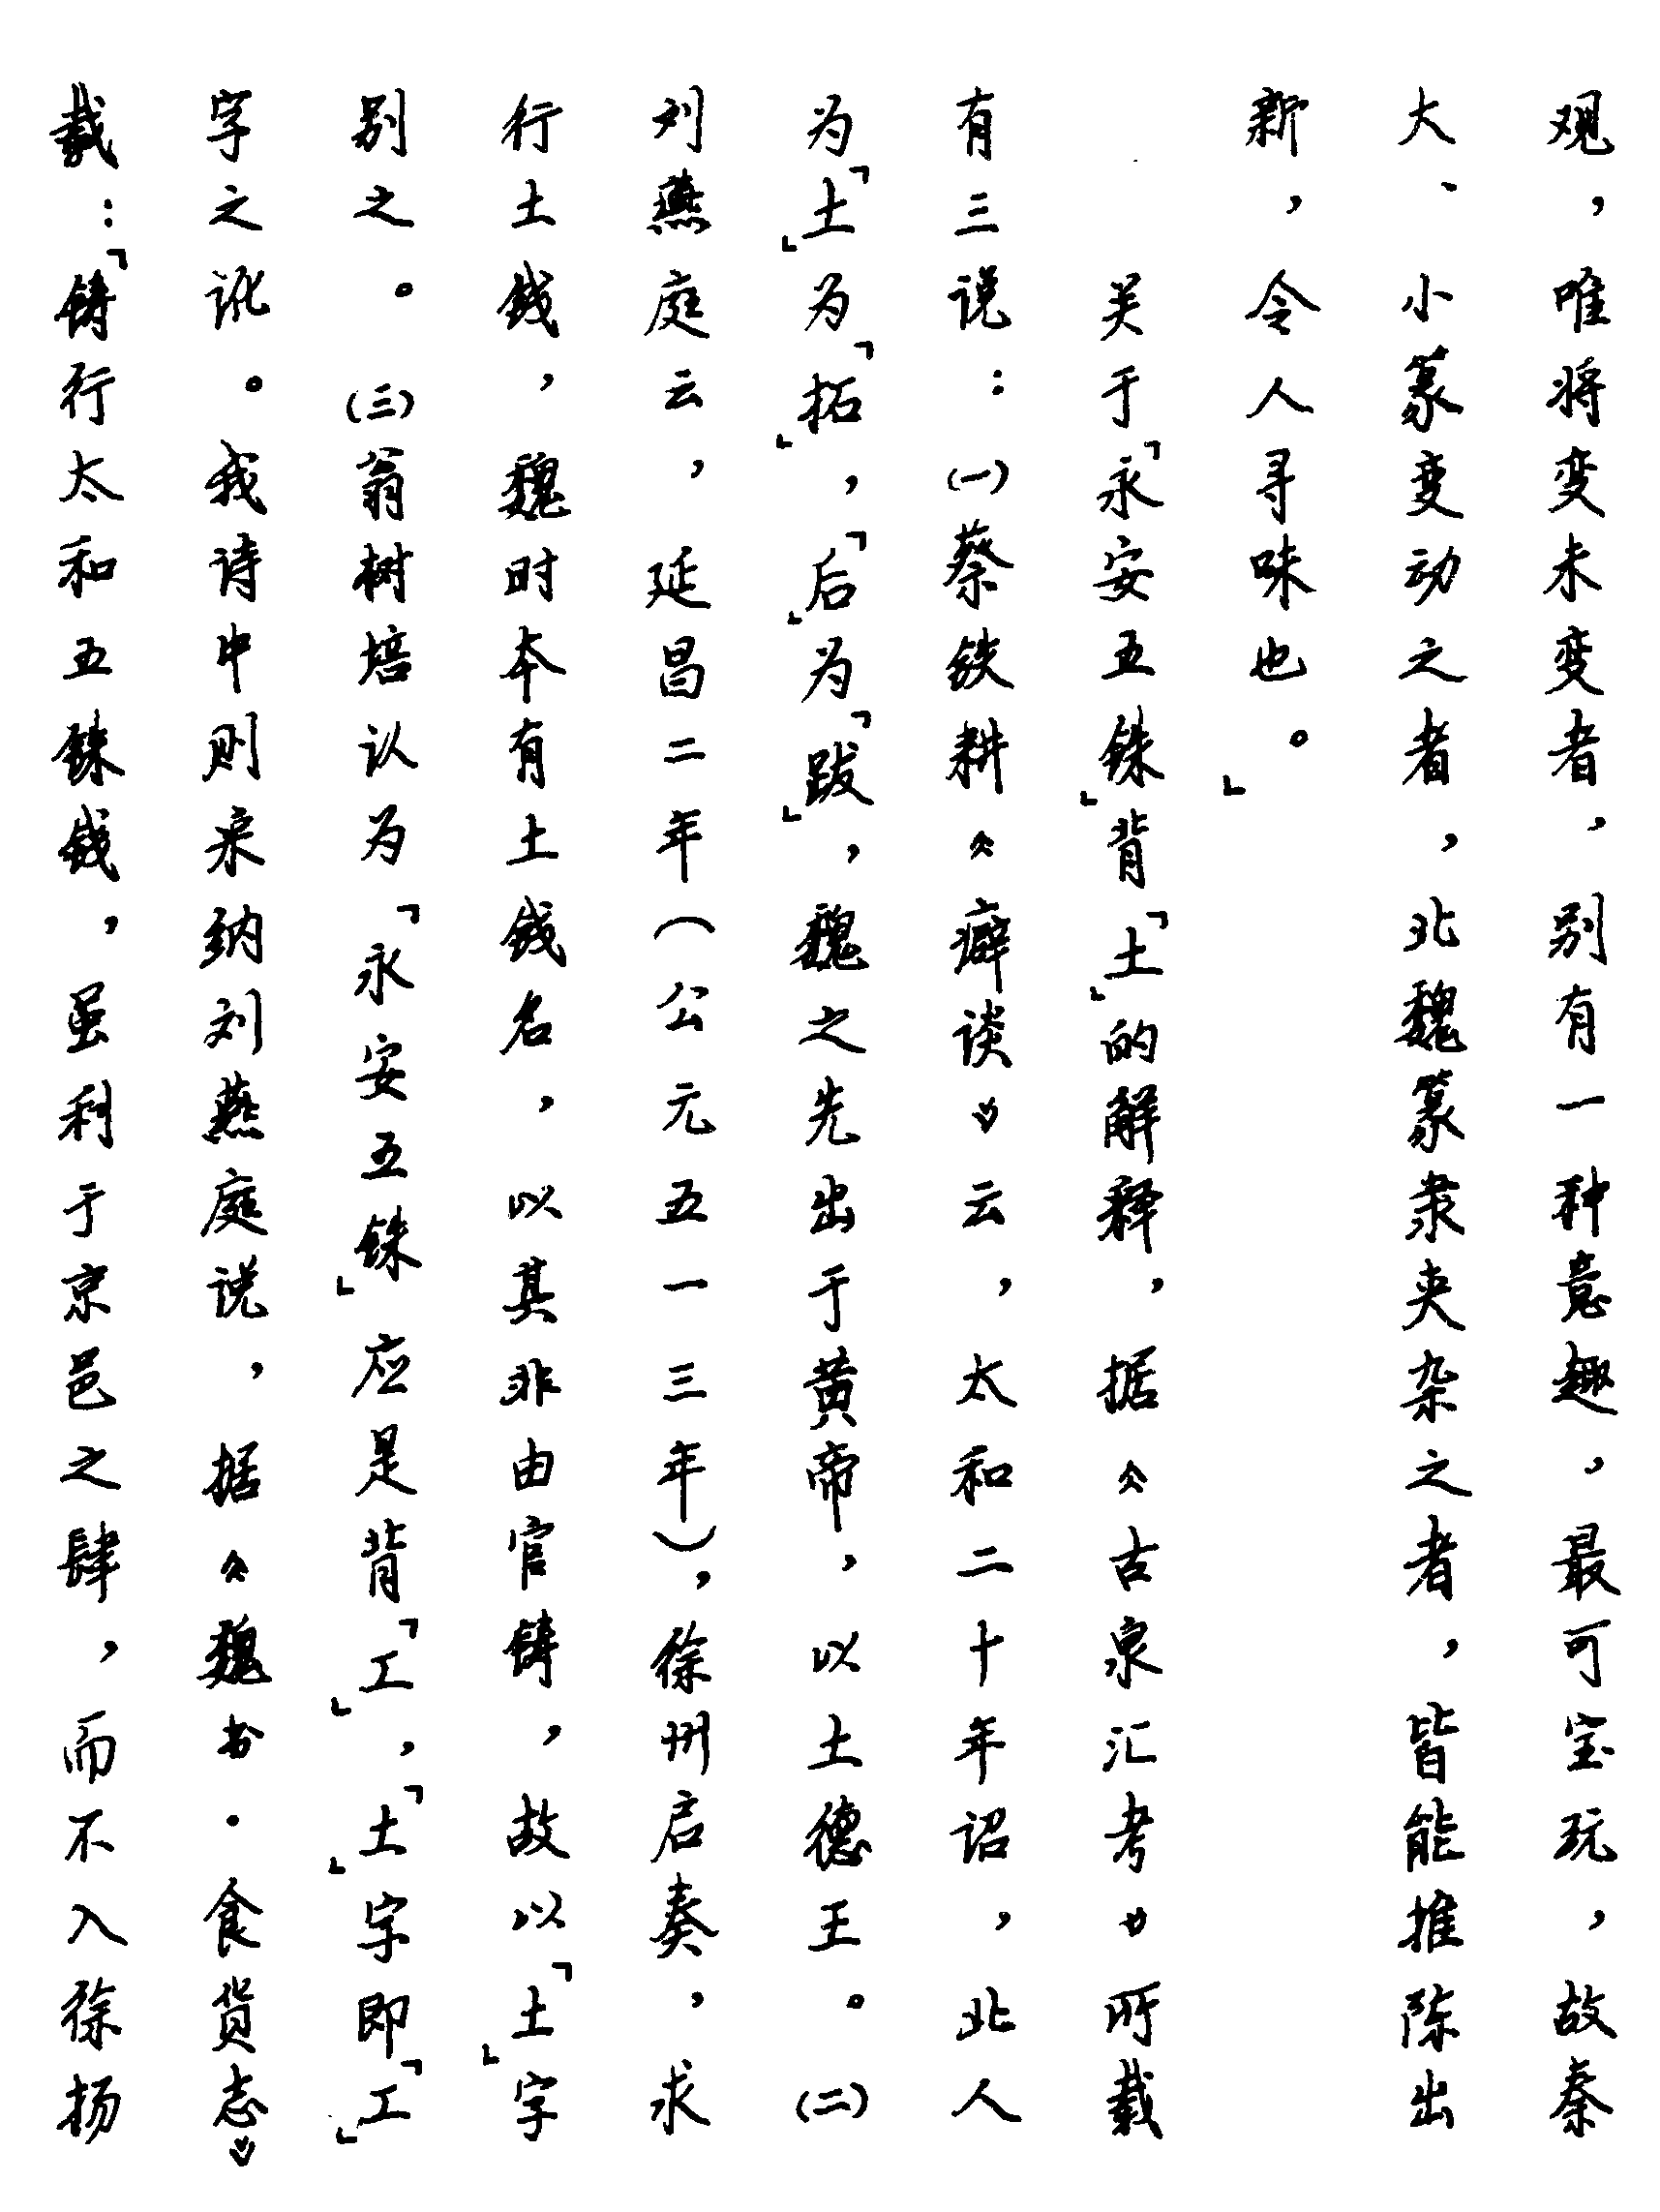 观，唯将变未变者，别有一种意趣，最可宝玩，故秦
大、小篆变动之者，北魏篆隶夹杂之者，皆能推陈出
新，令人寻味也。」
关于「永安五铢」背「土」的解释，据《古泉汇考》所载
有三说：㈠蔡铁耕《癖谈》云，太和二十年诏，北人
为「土」为「拓」，「后」为「跋」，魏之先出于黄帝，以土德王。㈡
刘燕庭云，延昌二年（公元五一三年），徐州启奏，求
行土钱，魏时本有土钱名，以其非由官铸，故以「土」字
别之。㈢翁树培认为「永安五铢」应是背「工」，「土」字即「工」
字之讹。我诗中则采纳刘燕庭说，据《魏书·食货志》
载：「铸行太和五铢钱，虽利于京邑之肆，而不入徐扬